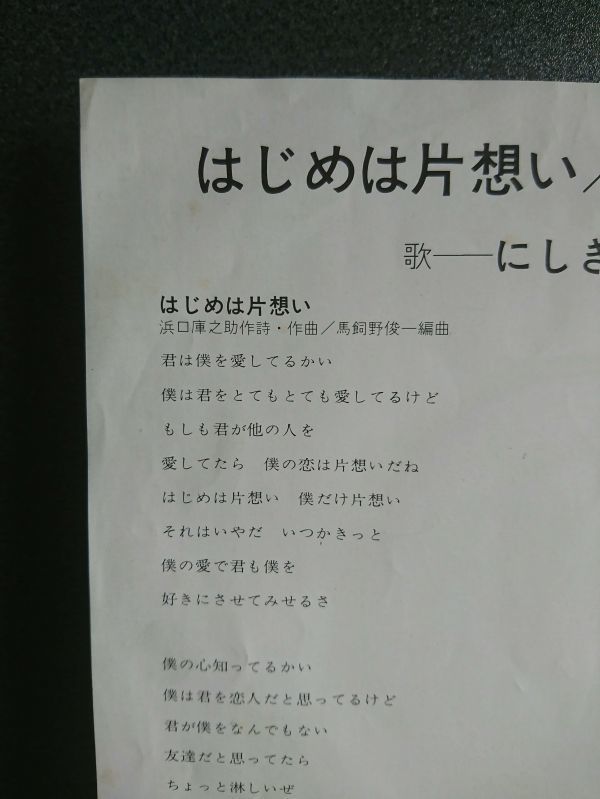 はじめは片想い／
歌──にしき
はじめは片想い
浜口庫之助作詩・作曲／馬飼野俊一編曲
君は僕を愛してるかい
僕は君をとてもとても愛してるけど
もしも君が他の人を
愛してたら　僕の恋は片想いだね
はじめは片想い　僕だけ片想い
それはいやだ　いつかきっと
僕の愛で君も僕を
好きにさせてみせるさ
僕の心知ってるかい
僕は君を恋人だと思ってるけど
君が僕をなんでもない
友達だと思ってたら
ちょっと淋しいぜ